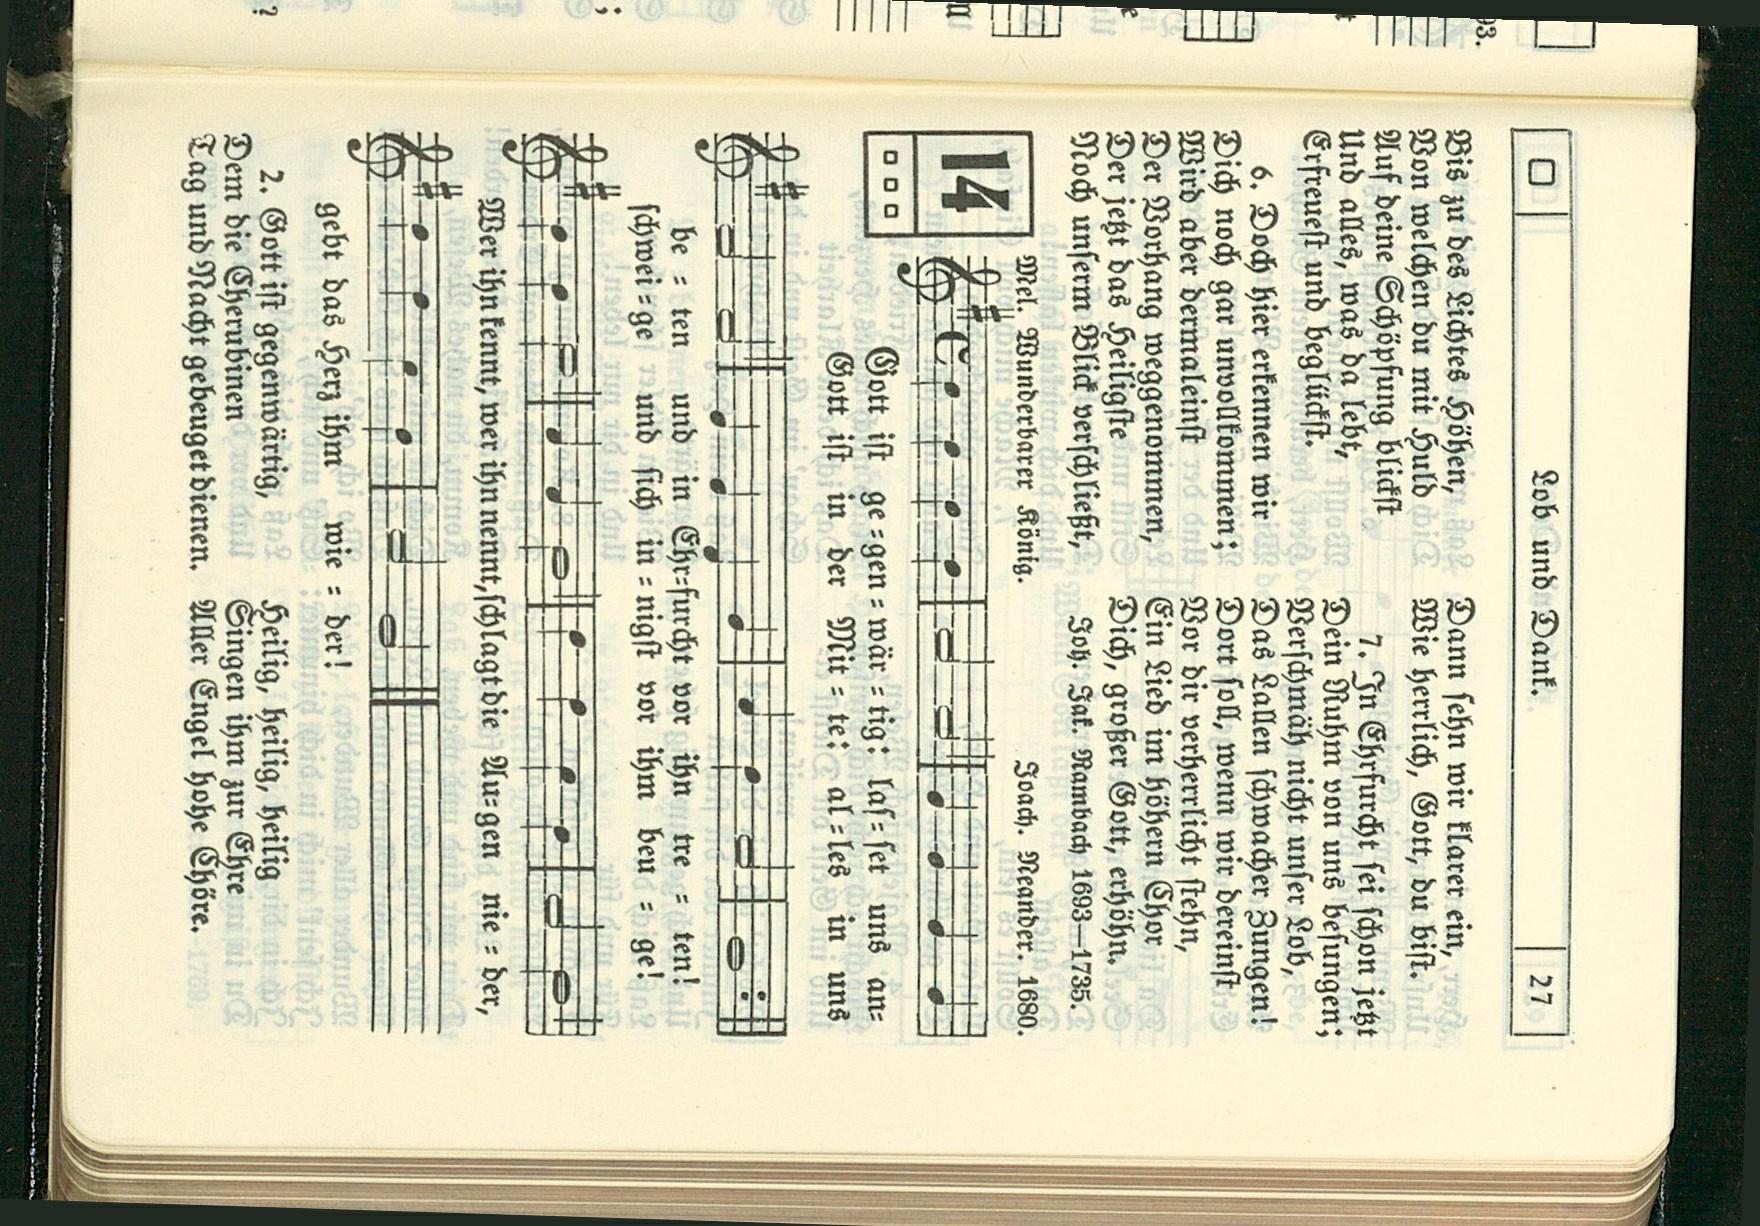 Lob und Dank.
27
Bis zu des Lichtes Höhen,
Von welchen du mit Huld
Auf deine Schöpfung blickst
Und alles, was da lebt,
Erfreuest und beglückst.
6. Doch hier erkennen wir
Dich noch gar unvollkommen;
Wird aber dermaleinst
Der Vorhang weggenommen,
Der jetzt das Heiligste
Noch unserm Blick verschließt,
Dann sehn wir klarer ein,
Wie herrlich, Gott, du bist.
7. In Ehrfurcht sei schon jetzt
Dein Ruhm von uns besungen;
Verschmäh nicht unser Lob,
Das Lallen schwacher Zungen!
Dort soll, wenn wir dereinst
Vor dir verherrlicht stehn,
Ein Lied im höhern Chor
Dich, großer Gott, erhöhn.
Joh. Jak. Rambach 1693—1735.
14
Mel. Wunderbarer König.
Joach. Neander. 1680.
Gott ist ge=gen=wär=tig: las=set uns an=
Gott ist in der Mit=te: al=les in uns
be=ten und in Ehr=furcht vor ihn tre=ten!
schwei=ge und sich in=nigst vor ihm beu=ge!
Wer ihn kennt, wer ihn nennt, schlagt die Au=gen nie=der,
gebt das Herz ihm wie=der!
2. Gott ist gegenwärtig,
Dem die Cherubinen
Tag und Nacht gebeuget dienen.
Heilig, heilig, heilig
Singen ihm zur Ehre
Aller Engel hohe Chöre.